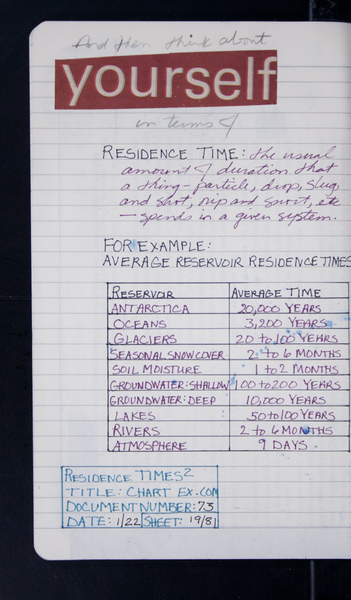 And then think about
yourself
in terms of
RESIDENCE TIME: the usual
amount of duration that
a thing - particle, drop, slug,
and shot, nip and snort, etc
— spends in a given system.
FOR EXAMPLE:
AVERAGE RESERVOIR RESIDENCE TIMES
RESERVOIR AVERAGE TIME
ANTARCTICA 20,000 YEARS
OCEANS 3,200 YEARS
GLACIERS 20 to 100 YEARS
SEASONAL SNOW COVER 2 to 6 MONTHS
SOIL MOISTURE 1 to 2 MONTHS
GROUNDWATER: SHALLOW 100 to 200 YEARS
GROUNDWATER: DEEP 10,000 YEARS
LAKES 50 to 100 YEARS
RIVERS 2 to 6 MONTHS
ATMOSPHERE 9 DAYS.
RESIDENCE TIMES2
TITLE: CHART EX.COM
DOCUMENT NUMBER: 73
DATE: 1/22 SHEET: 19/81